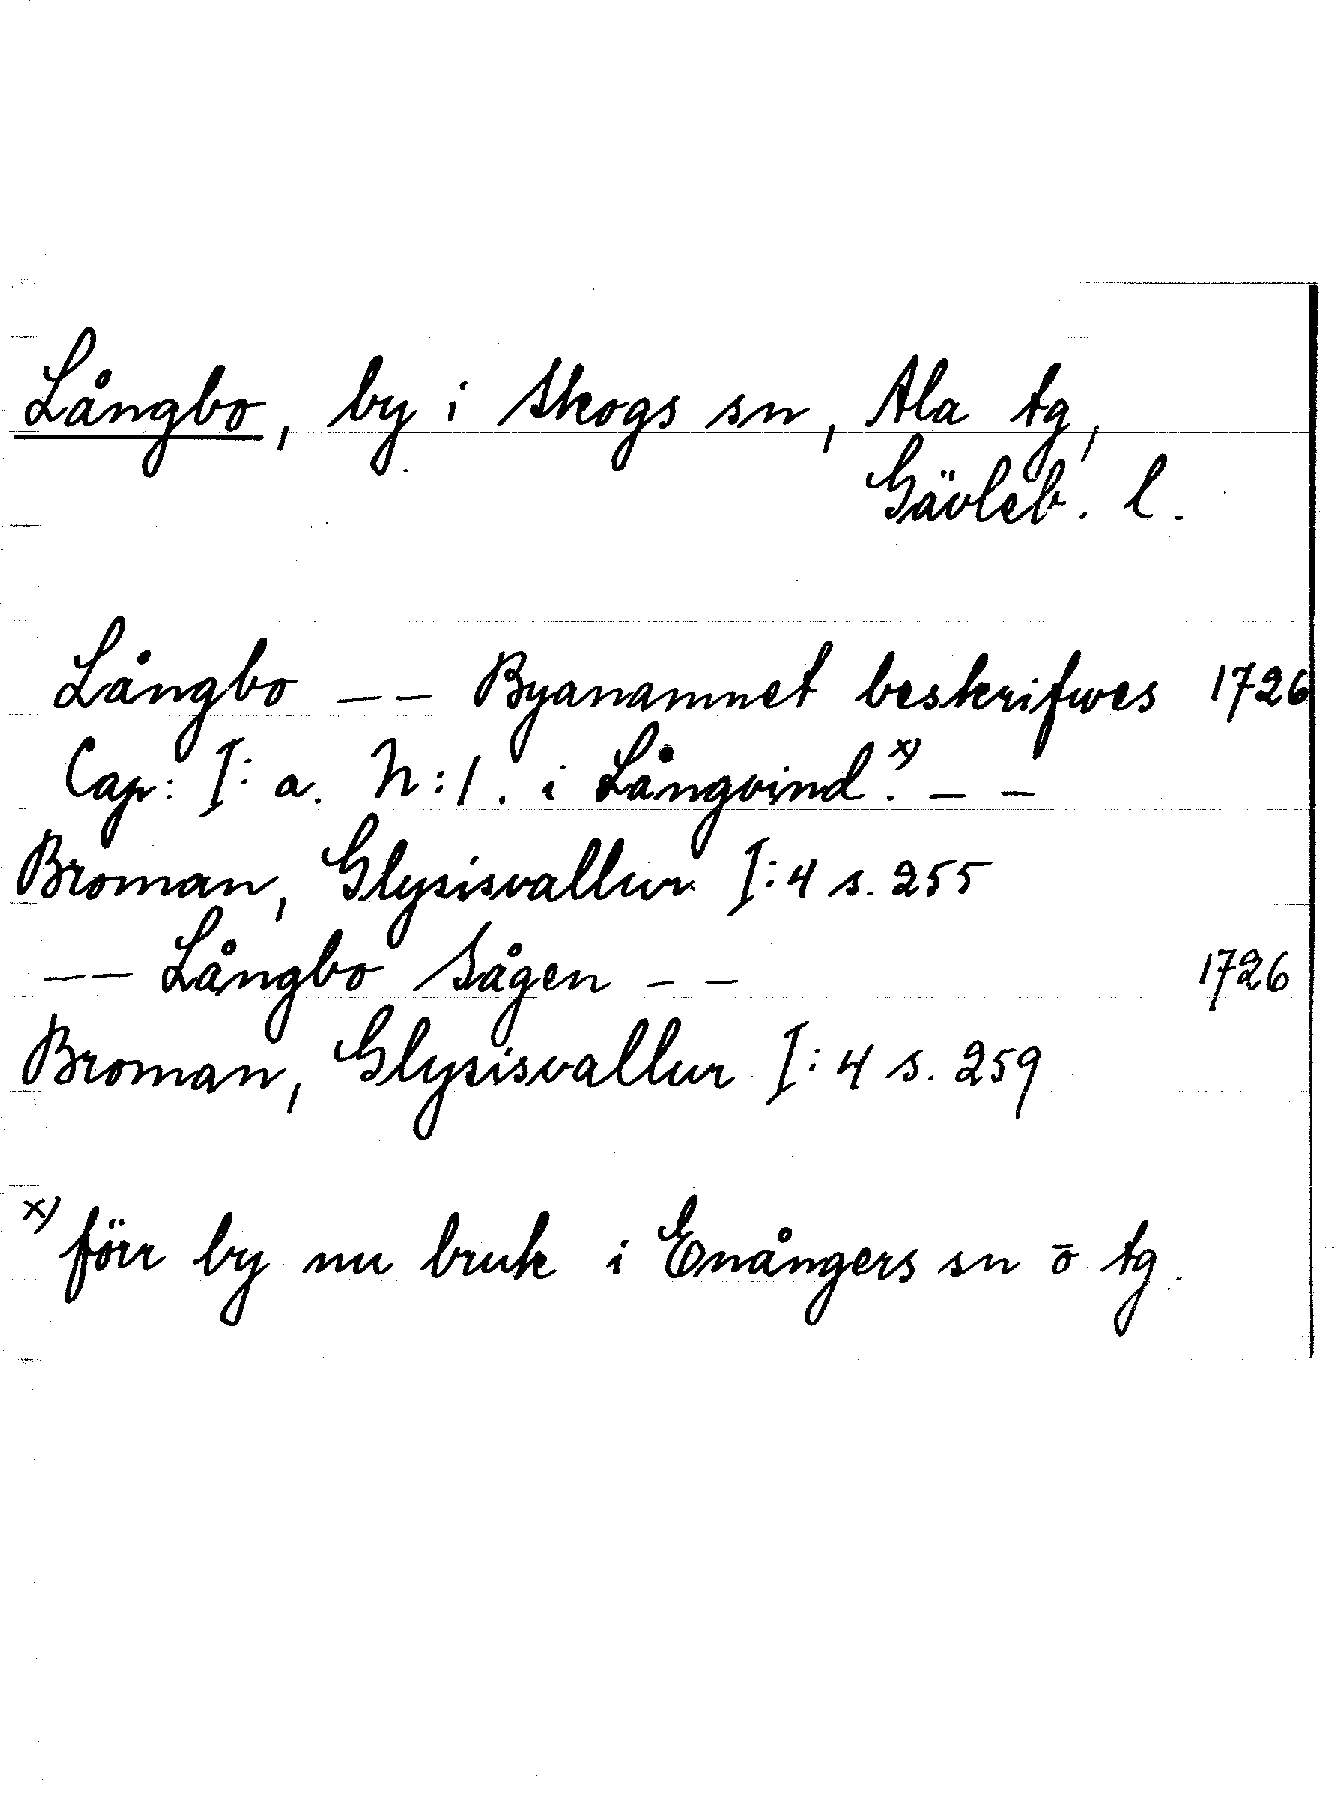 Långbo, by i Skogs sn, Ala tg,
Gävleb. l.
Långbo -- Byanamnet beskrifwes 1726
Cap: I: a. N:1. i Långvind.x) --
Broman, Glysisvallur I:4 s. 255
-- Långbo Sågen -- 1726
Broman, Glysisvallur I:4 s. 259
x) förr by nu bruk i Enångers sn o tg.